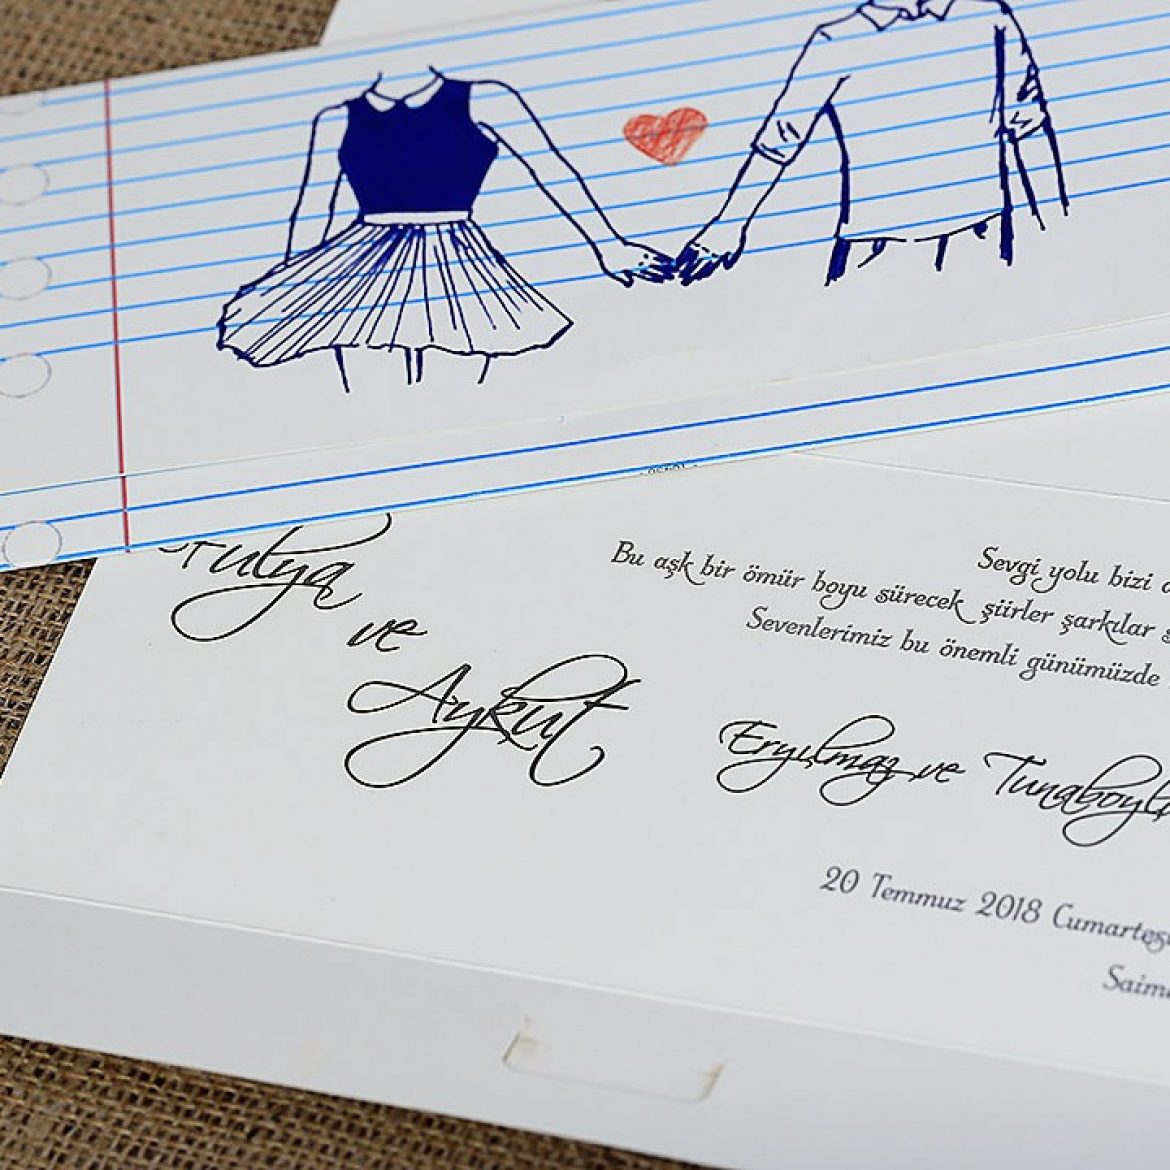 Fulya
ve
Aykut
Sevgi yolu bizi
Bu aşk bir ömür boyu sürecek şiirler şarkılar
Sevenlerimiz bu önemli günümüzde
Eryılmaz ve Tunaboyl
20 Temmuz 2018 Cumartesi
Saim